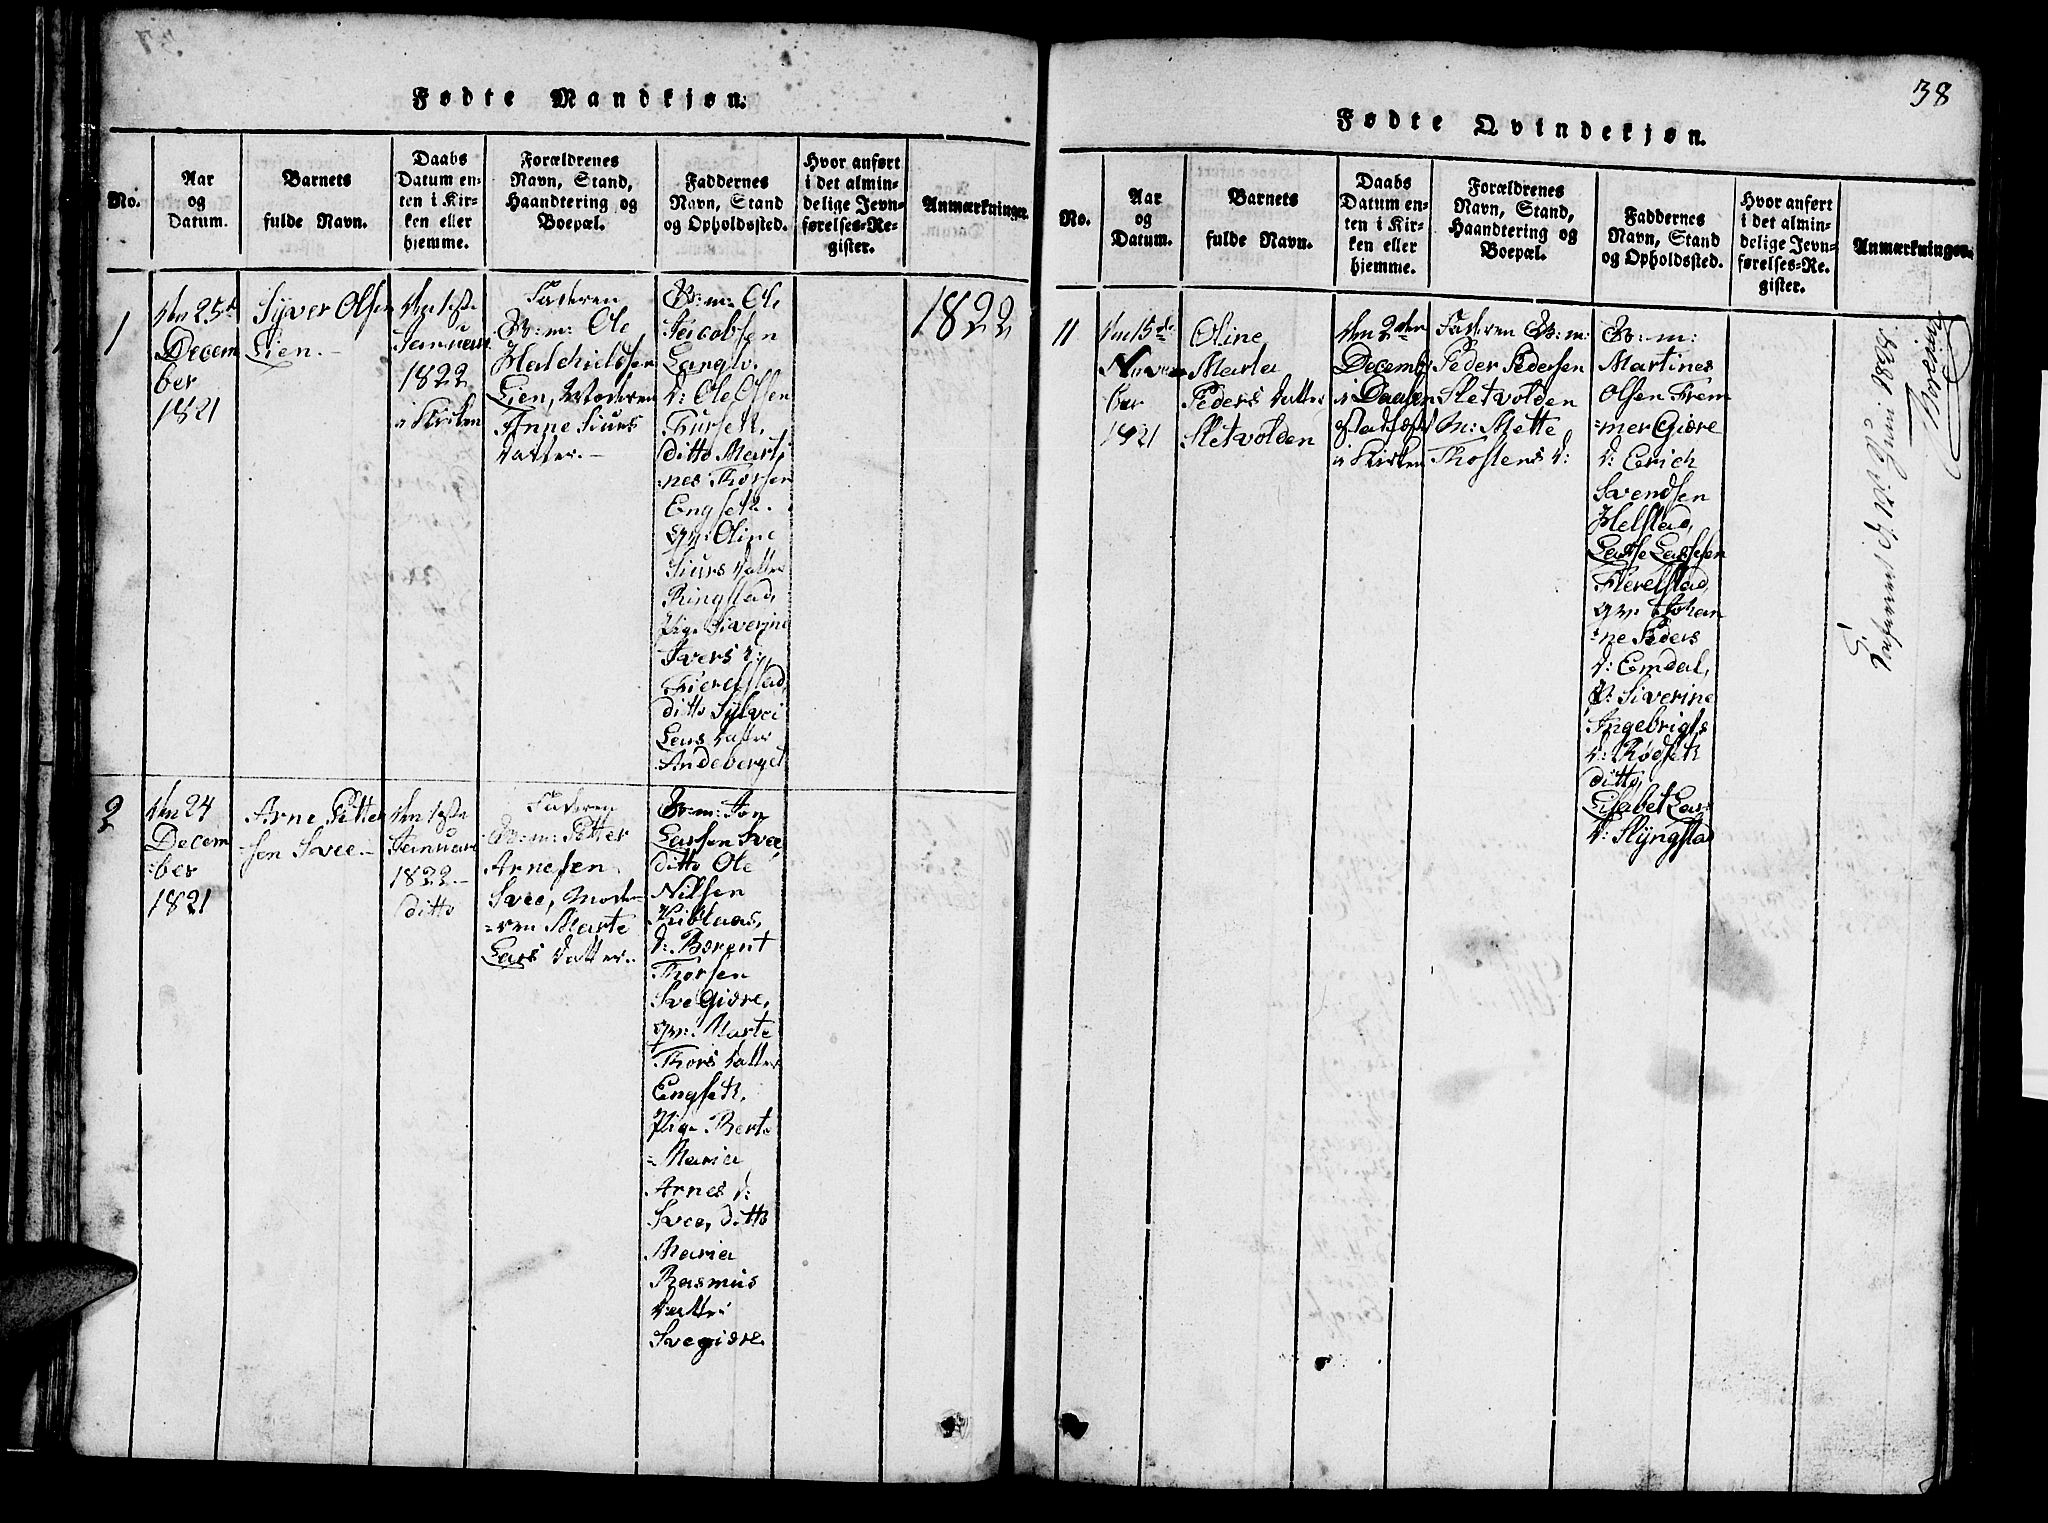 Fødte Mandkjøn.
No.
Aar
og
Datum.
Barnets
fulde Navn.
Daabs
Datum en-
ten i Kir-
ken eller
hjemme.
Forældrenes
Navn, Stand,
Haandtering og
Boepæl.
Faddernes
Navn, Stand
og Opholdssted.
Hvor anført
i det almin-
delige Jevn-
førelses-Re-
gister.
Anmærkninger.
1
den 25de
Decem
ber
1821
Syver Olsen
Lien.
den 1ste
Januar
1822
i Kirken
Faderen
Gr: m: Ole
Halchieldsen
Lien, Moderen
Anne Siurs
datter.
Gr: m: Ole
Jacobsen
Langlo.
d: Ole Olsen
Furseth,
ditto Marti
nes Thorsen
Engseth.
gr: Oline
Siurs datter
Ringstad,
Pige Siverine
Ivers d:
Fierelstad,
ditto Sylvei
Lars datter
Andeberget
1822
2
den 24
Decem
ber
1821
Arne Petter
sen Svee.
den 1ste
Januar
1822
ditto
Faderen
Gr: m: Petter
Arnesen
Svee, Mode
=ren Marte
Lars datter.
Gr: m: Jon
Larsen Svee,
ditto Ole
Nilsen
d: Berent
Thorsen
Svegiære,
gr: Marte
Thors datter
Engseth,
Pige Berte
=Maria
Arnes d:
Svee, ditto
Maria
Rasmus
datter
Svegiære.
38
Fødte Qvindekjøn.
No.
Aar
og
Datum.
Barnets
fulde Navn.
Daabs
Datum en-
ten i Kir-
ken eller
hjemme.
Forældrenes
Navn, Stand,
Haandtering og
Boepæl.
Faddernes
Navn, Stand
og Opholdssted.
Hvor anført
i det almin-
delige Jevn-
førelses-Re-
gister.
Anmærkninger.
11
den 15de
Novem
ber
1821
Oline
Marta
Peders datter
Sletvolden
den 2den
Decemb
i Daaben
stadfæst
i Kirken
Faderen Gr: m:
Peder Pedersen
Sletvolden
M: Mette
Thostens d:
Gr: m:
Martines
Olsen Frem
=mergiære
d: Erich
Svendsen
Helstad,
Lasse Lassesen
Fierelstad,
gr: Johan
=ne Peders
d: Emdal,
P: Siverine
Ingebrigts
d: Rødseth
ditto
Lisabet Lars
d: Slyngstad